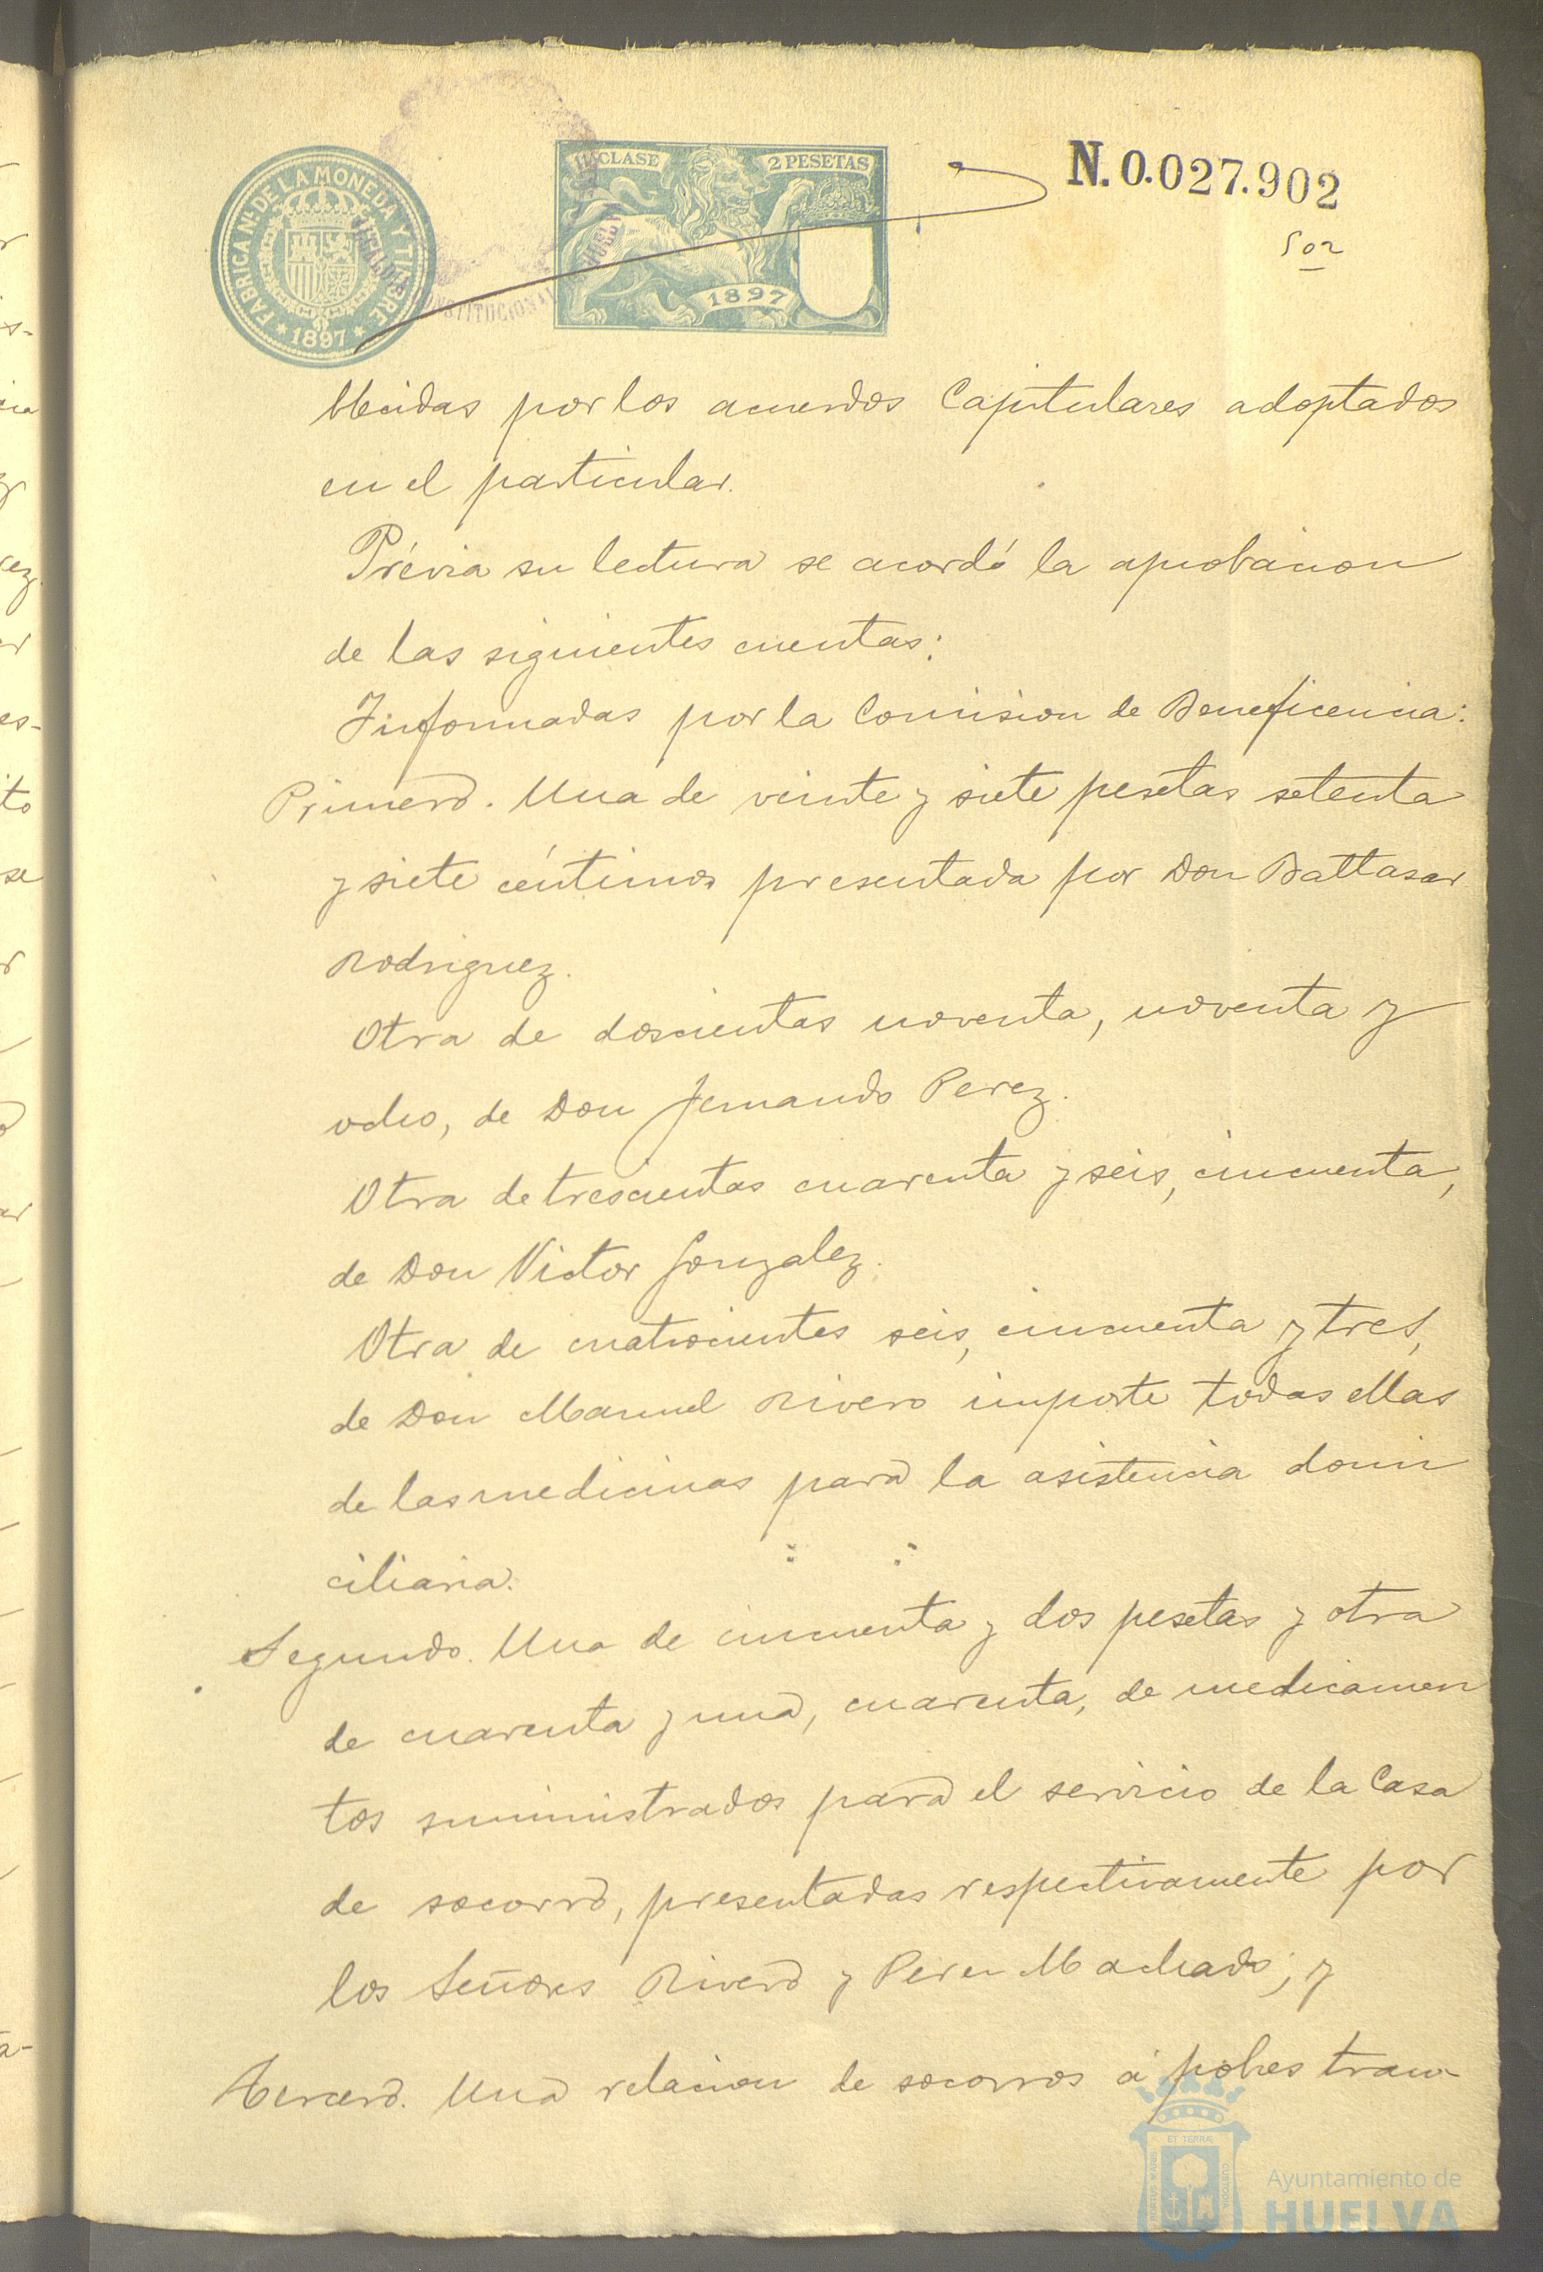 FABRICA Nl. DE LA MONEDA Y TIMBRE
* 1897 *
11ª CLASE
2 PESETAS
1897
CONSTITUCIONAL
HUELVA
N. 0.027.902
502
blecidas por los acuerdos Capitulares adoptados
en el particular.
Prévia su lectura se acordó la aprobacion
de las siguientes cuentas:
Informadas por la Comision de Beneficencia:
Primero. Una de veinte y siete pesetas setenta
y siete céntimos presentada por Don Baltasar
Rodriguez.
Otra de doscientas noventa, noventa y
ocho, de Don Fernando Perez.
Otra de trescientas cuarenta y seis, cincuenta,
de Don Victor Gonzalez.
Otra de cuatrocientes seis, cincuenta y tres,
de Don Manuel Rivero importe todas ellas
de las medicinas para la asistencia domi
ciliaria.
Segundo. Una de cincuenta y dos pesetas y otra
de cuarenta y una, cuarenta, de medicamen
tos suministrados para el servicio de la Casa
de socorro, presentadas respectivamente por
los Señores Rivero y Perez Machado; y
Tercero. Una relacion de socorros á pobres tran-
ET TERRÆ
CUSTODIA
Ayuntamiento de
HUELVA